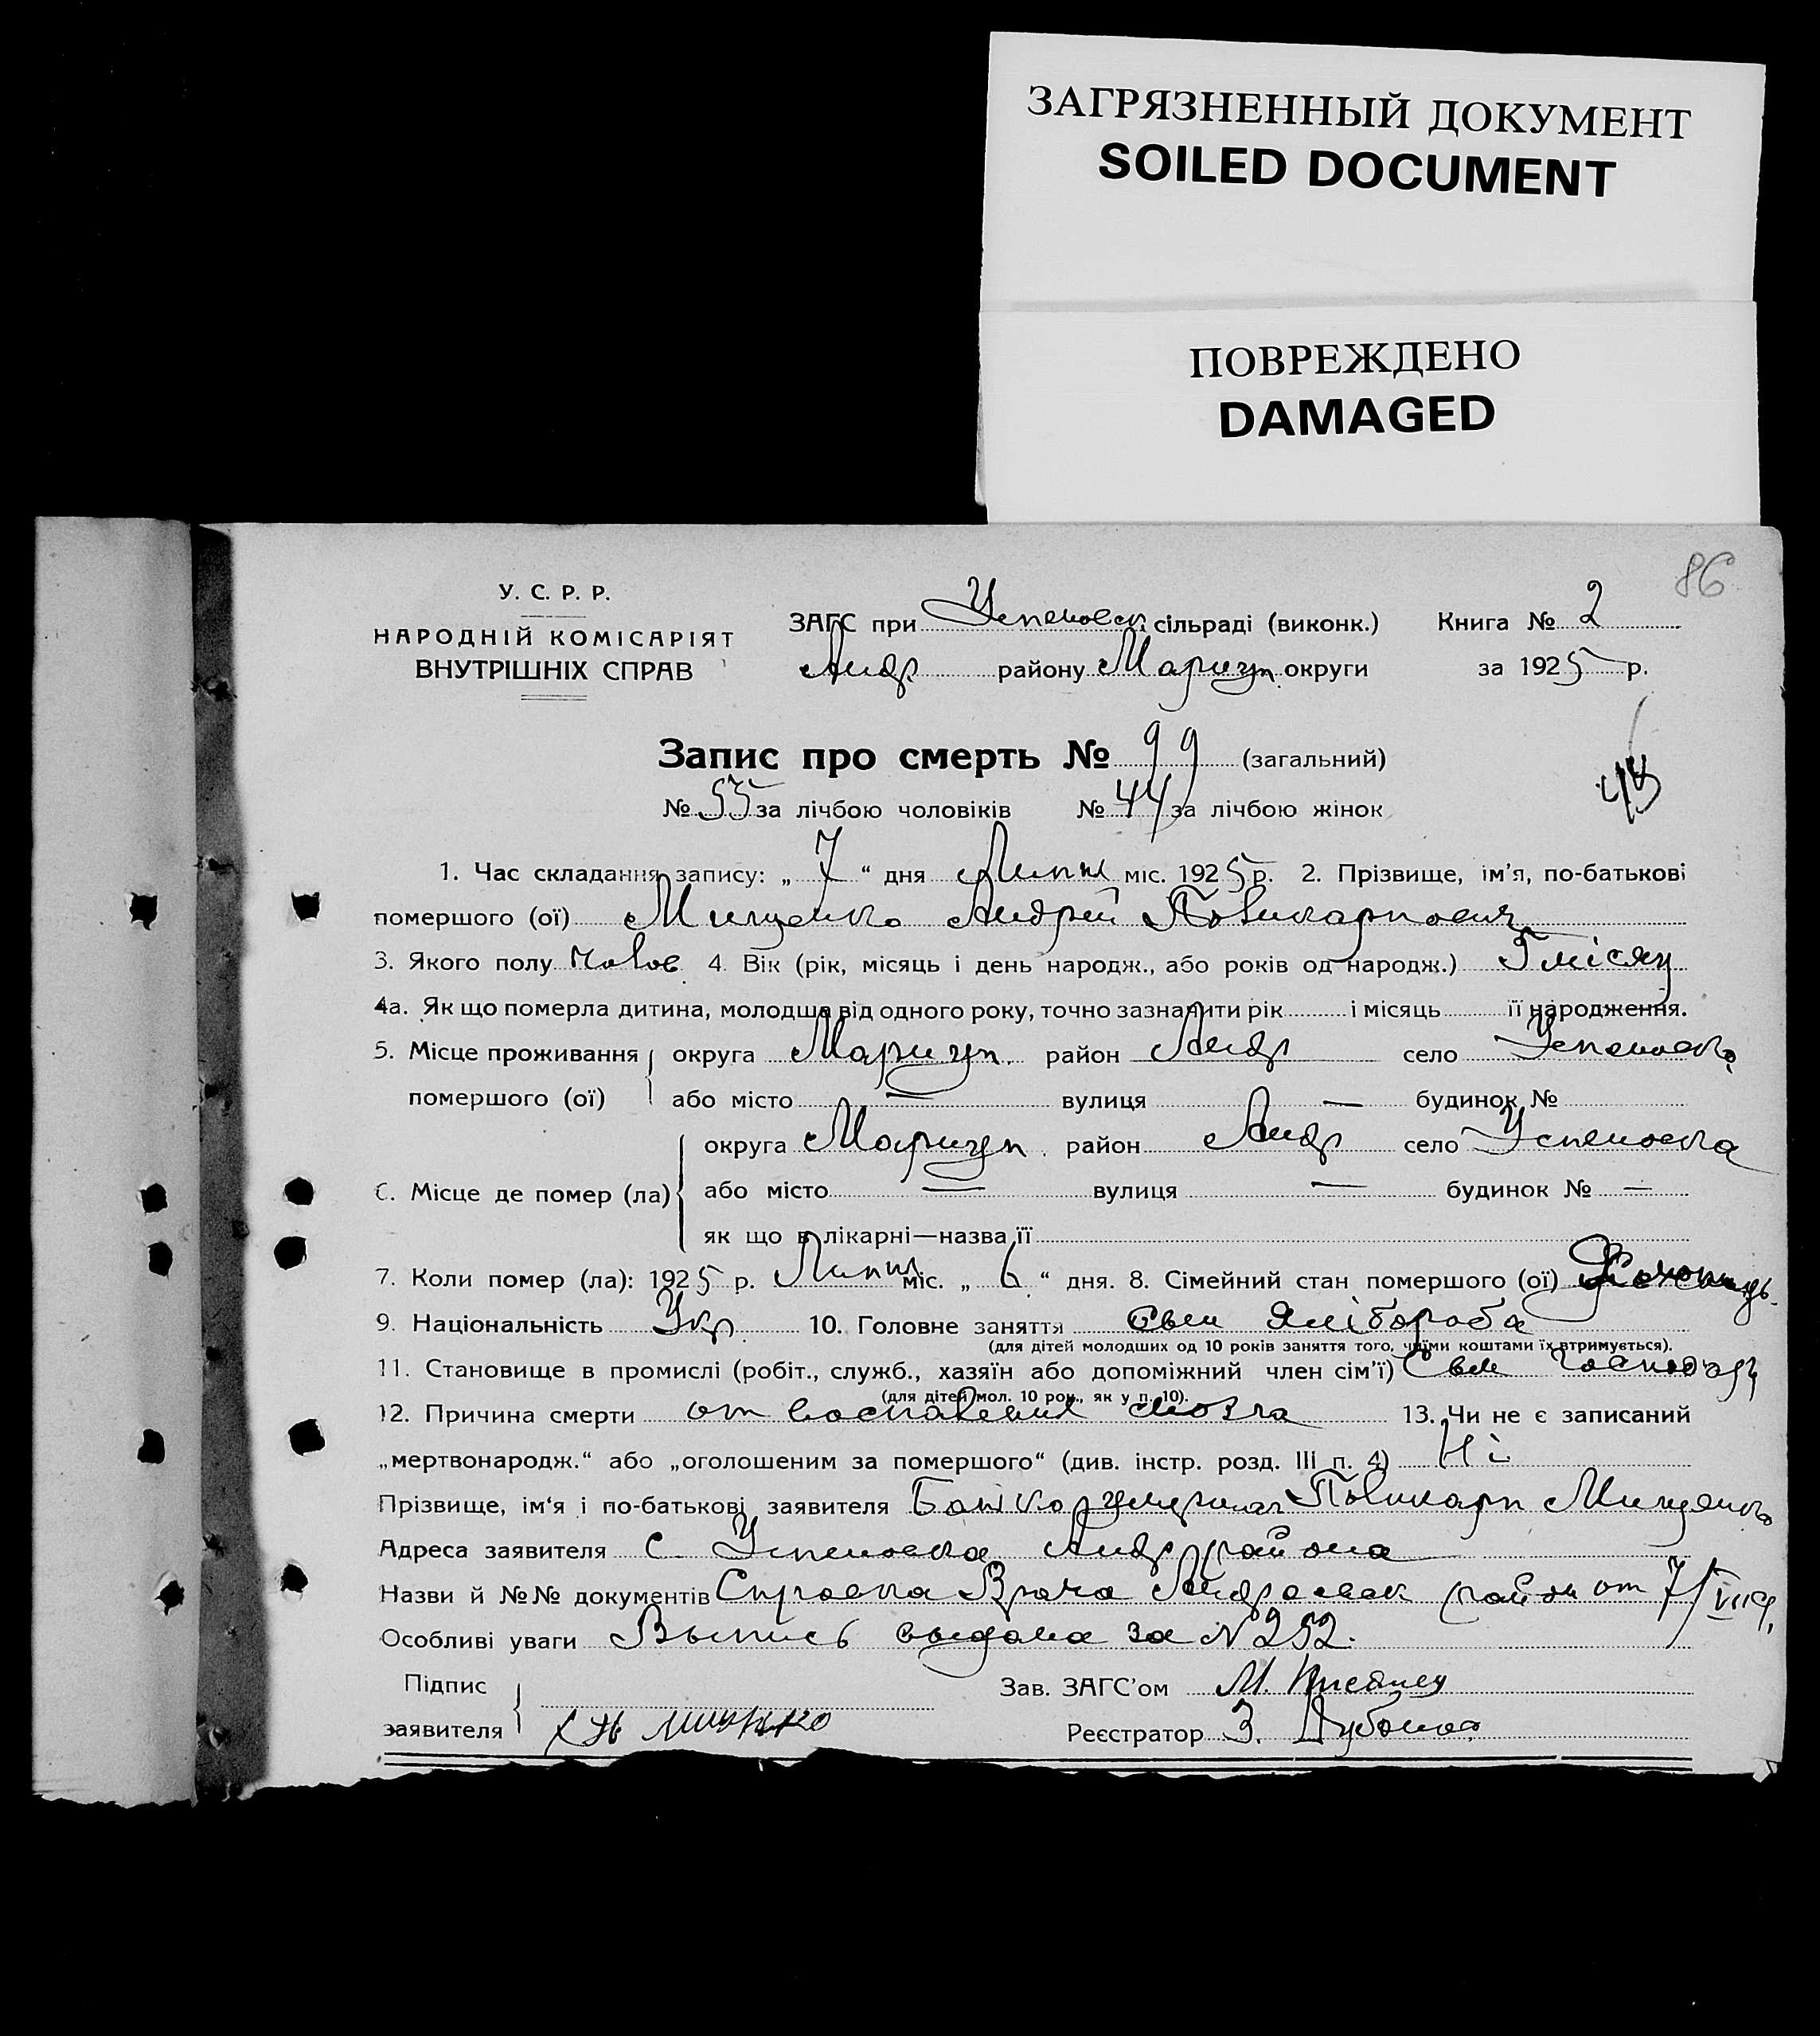 ЗАГРЯЗНЕННЫЙ ДОКУМЕНТ
SOILED DOCUMENT
ПОВРЕЖДЕНО
DAMAGED
86
У. С. Р. Р.
НАРОДНІЙ КОМІСАРІЯТ
ВНУТРІШНІХ СПРАВ
ЗАГС при Успеновск. сільраді (виконк.) Книга № 2
Андр району Мариуп. округи за 1925 р.
Запис про смерть № 99 (загальний)
№ 55 за лічбою чоловіків № 44 за лічбою жінок
1. Час складання запису: „ 7 “ дня Липня міс. 1925 р. 2. Прізвище, ім’я, по-батькові
помершого (ої) Мищенко Андрей Поликарпович
3. Якого полу Чолов. 4. Вік (рік, місяць і день народж., або років од народж.) 5 місяц
4а. Як що померла дитина, молодша від одного року, точно зазначити рік і місяць її народження.
5. Місце проживання округа Мариуп. район Андр село Успеновка
помершого (ої) або місто — вулиця — будинок №
округа Мариуп. район Андр село Успеновка
6. Місце де помер (ла) або місто — вулиця — будинок № —
як що в лікарні—назва її
7. Коли помер (ла): 1925 р. Липня міс. „ 6 “ дня. 8. Сімейний стан помершого (ої)
9. Національність Укр. 10. Головне заняття хліборобa
(для дітей молодших од 10 років заняття того, чиїми коштами їх втримується).
11. Становище в промислі (робіт., служб., хазяїн або допоміжний член сім’ї)
(для дітей мол. 10 рок., як у п. 10).
12. Причина смерти от воспаления мозга 13. Чи не є записаний
„мертвонародж.“ або „оголошеним за помершого“ (див. інстр. розд. III п. 4) Ні
Прізвище, ім‘я і по-батькові заявителя Батько Поликарп Мищенко
Адреса заявителя с. Успеновка Андр района
Назви й №№ документів Справка Врача Андреевск район от 7/VII
Особливі уваги Выпись выдана за №252.
Підпис Зав. ЗАГС’ом М.
заявителя Реєстратор З.